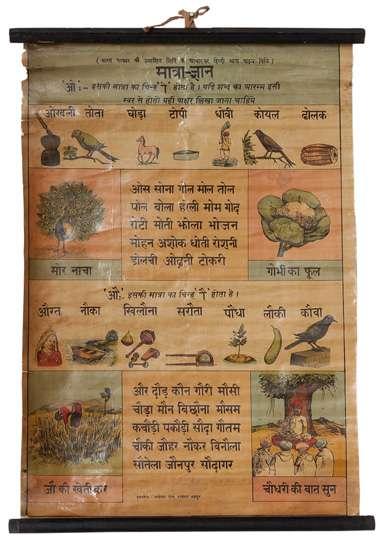 ( भारत सरकार की प्रमाणित लिपि के आधार पर हिन्दी भाषा पठन विधि )
मात्रा-ज्ञान
'ओ':- इसकी मात्रा का चिन्ह 'ो' होता है। यदि शब्द का प्रारम्भ इसी
स्वर से हो तो यही अक्षर लिखा जाना चाहिये
ओखली तोता घोड़ा टोपी धोबी कोयल ढोलक
ओस सोना गोल मोल तोल
पोल बोला होली मोम गोद
रोटी मोती झोला भोजन
मोहन अशोक धोती रोशनी
डोलची ओढ़नी टोकरी
मोर नाचा
गोभी का फूल
'औ':- इसकी मात्रा का चिन्ह 'ौ' होता है।
औरत नौका खिलौना सरौता पौधा लौकी कौवा
और दौड़ कौन गौरी मौसी
चौड़ा मौन बिछौना मौसम
कचौड़ी पकौड़ी सौदा गौतम
चौकी जौहर नौकर बिनौला
सौतेला जौनपुर सौदागर
जौ की खेती कर
चौधरी की बात सुन